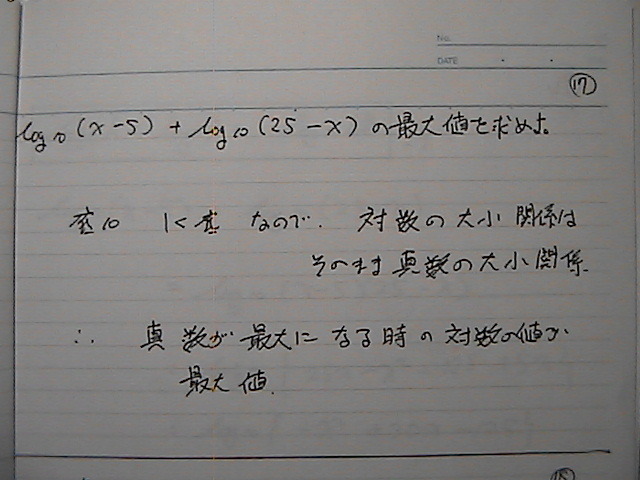 No.
DATE
⑰
log₁₀(x-5) + log₁₀(25-x) の最大値を求めよ。
底10 1<底 なので. 対数の大小関係は
そのまま真数の大小関係.
∴ 真数が最大になる時の対数の値が
最大値.
⑱